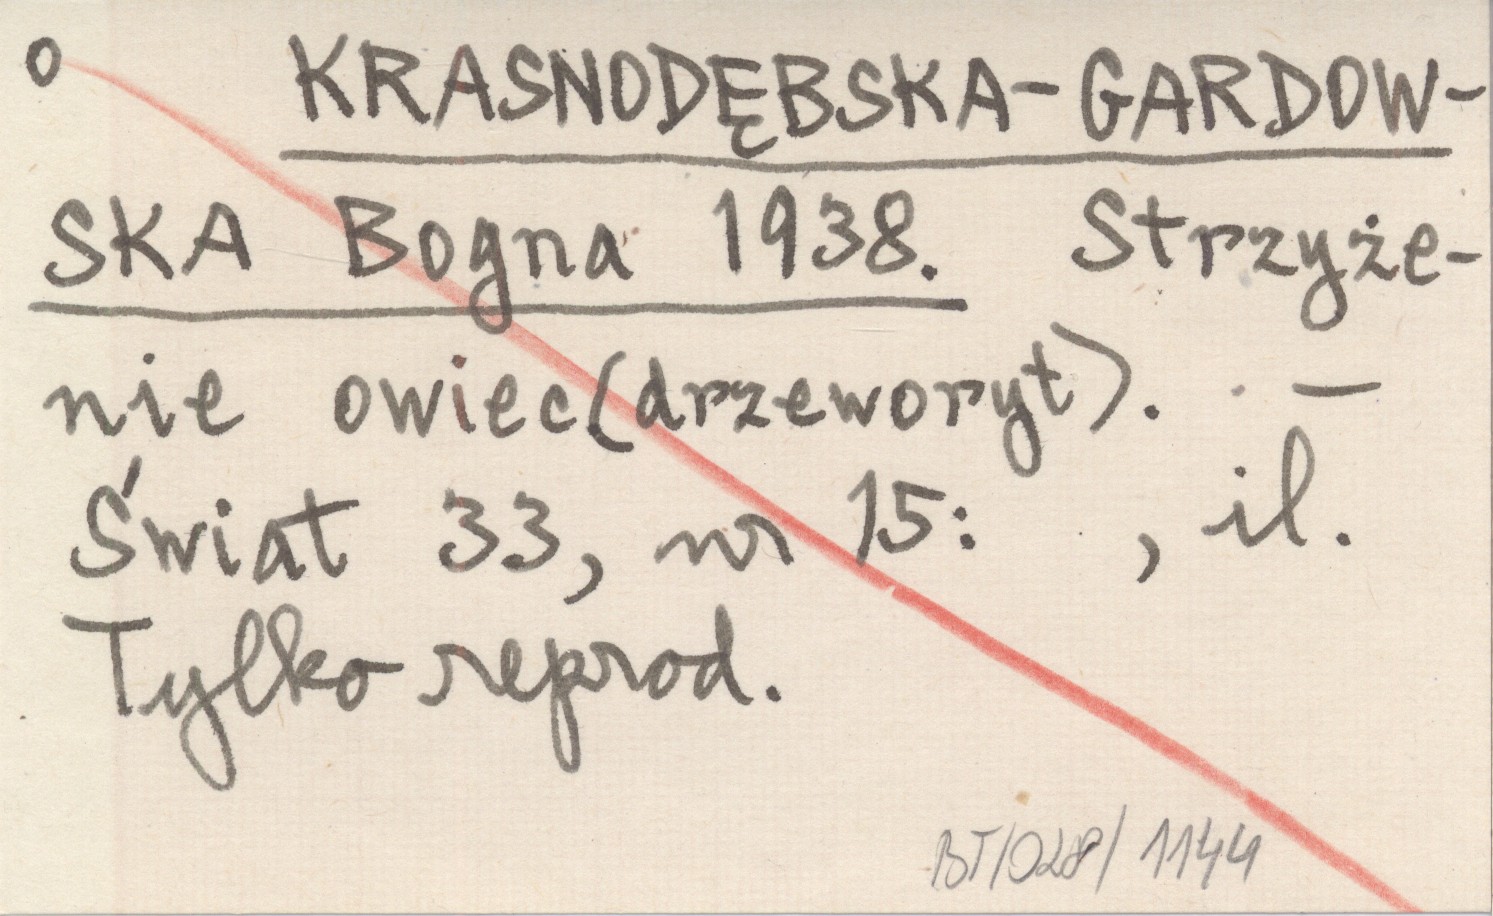 o KRASNODĘBSKA-GARDOW-
SKA Bogna 1938. Strzyże-
nie owiec (drzeworyt). —
Świat 33, nr 15: , il.
Tylko reprod.
BT/028/1144